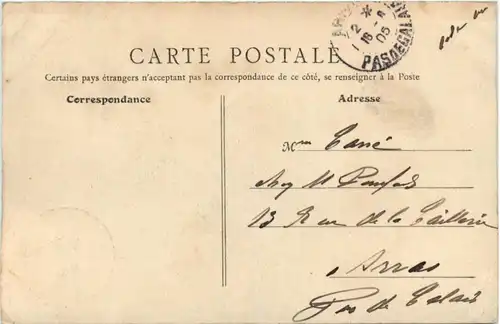 2 *
18 - 8
05
PAS DE CALAIS
CARTE POSTALE
Certains pays étrangers n'acceptant pas la correspondance de ce côté, se renseigner à la Poste
Correspondance
Adresse
Mme Carré
chez M
13 Rue de la Taillerie
Arras
Pas de Calais